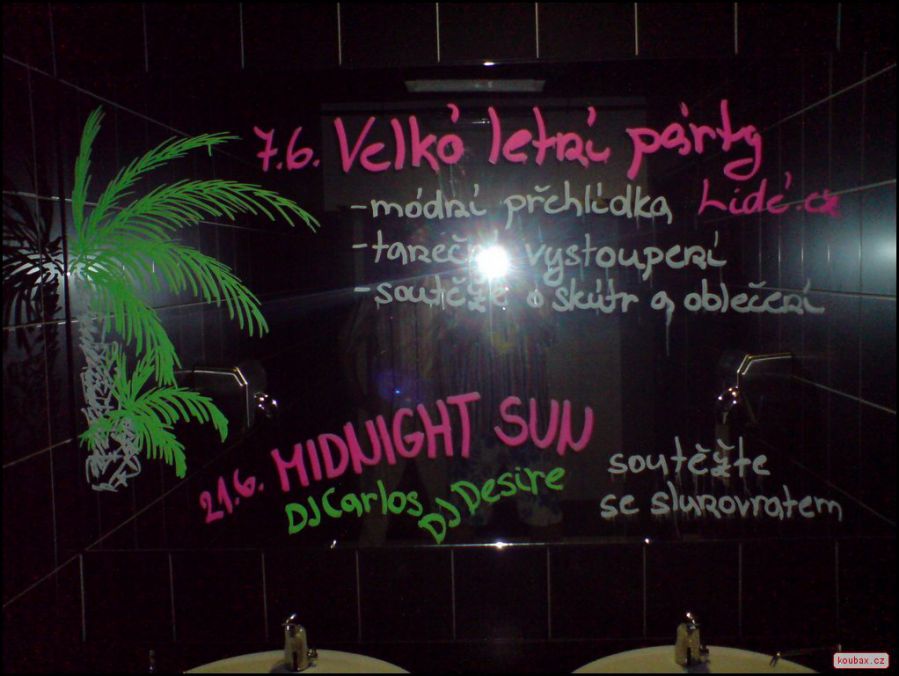 7.6. Velká letní párty
-módní přehlídka Lidé.cz
-taneční vystoupení
-soutěže o skútr a oblečení
21.6. MIDNIGHT SUN
DJ Carlos DJ Desire
soutěžte
se slunovratem
koubax.cz